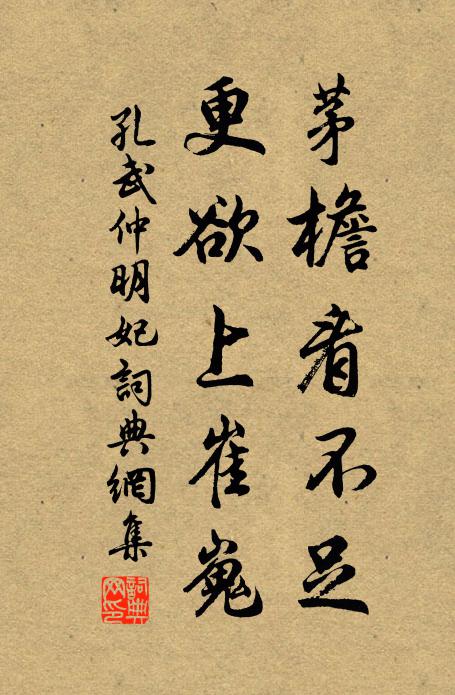 茅檐看不足
更欲上崔嵬
孔武仲明妃詞典網集
詞典网印